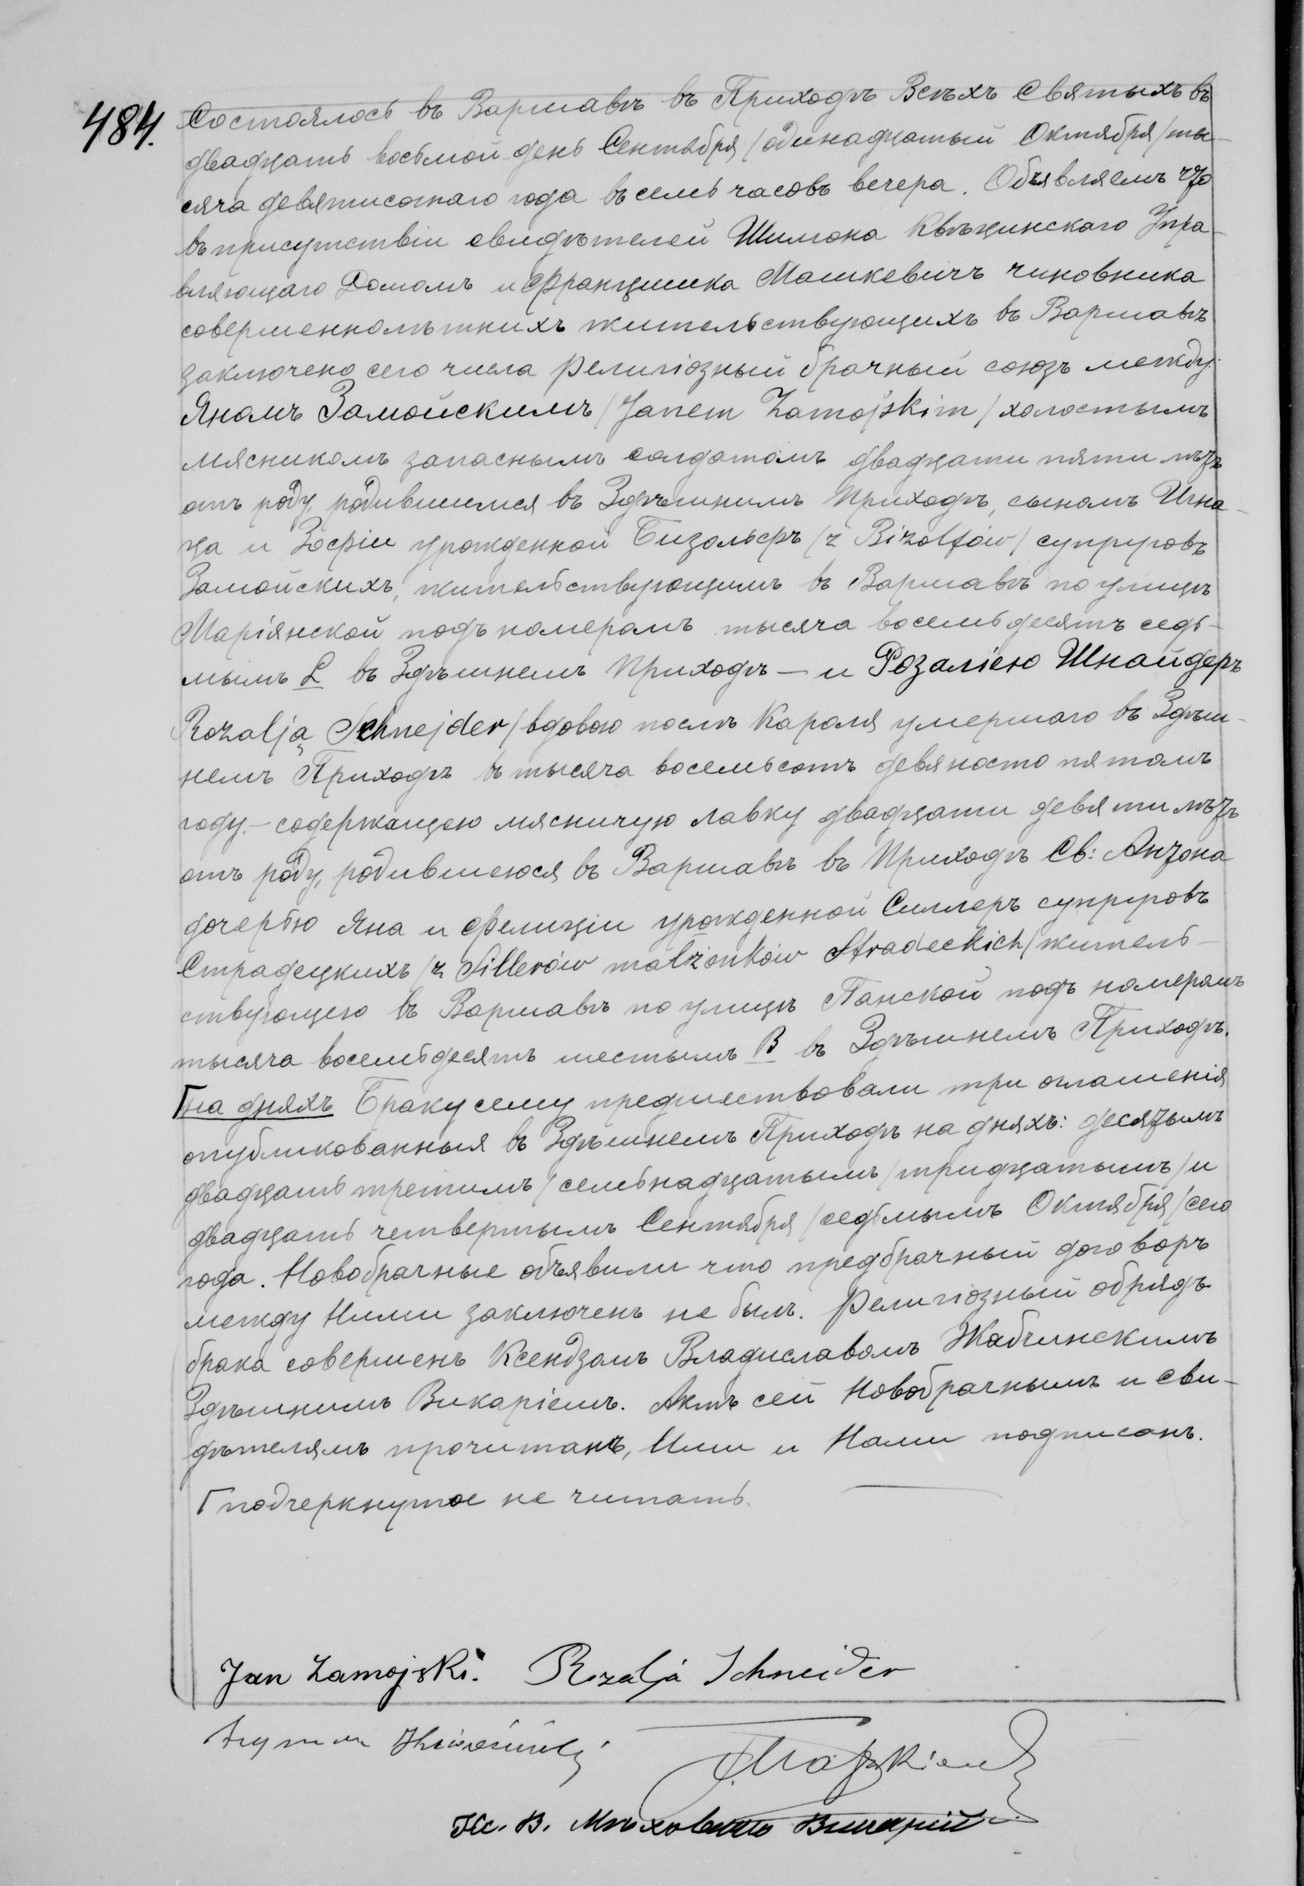 484.
Состоялось въ Варшавѣ въ Приходѣ Всѣхъ Святыхъ въ
двадцать восьмой день Сентября /одинадцатый Октября/ ты-
сяча девятисотнаго года въ семь часовъ вечера. Объявляемъ что
въ присутствіи свидѣтелей Шимона Квѣцинскаго Упра-
вляющаго Домомъ и Францишка Машкевичъ чиновника
совершеннолѣтнихъ жительствующихъ въ Варшавѣ
заключено сего числа религіозный брачный союзъ между
Яномъ Замойскимъ /Janem Zamojskim/ холостымъ
мясникомъ запаснымъ солдатомъ двадцати пяти лѣтъ
отъ роду, родившимся въ Здѣшнимъ Приходѣ, сыномъ Игна-
ца и Зофіи урожденной Бизольфъ /z Bizolfów/ супруговъ
Замойскихъ, жительствующимъ въ Варшавѣ по улицѣ
Маріянской подъ номеромъ тысяча восемьдесятъ седь-
мымъ L въ Здѣшнемъ Приходѣ — и Розаліею Шнайдеръ
Rozalją Schnejder/ вдовою послѣ Кароля умершаго въ Здѣш-
немъ Приходѣ въ тысяча восемьсотъ девяносто пятомъ
году. — содержащею мясничую лавку двадцати девяти лѣтъ
отъ роду, родившеюся въ Варшавѣ въ Приходѣ Св: Антона
дочерью Яна и Фелиціи урожденной Силлеръ супруговъ
Страдецкихъ /z Sillerów małżonków Stradeckich/ житель-
ствующею въ Варшавѣ по улицѣ Панской подъ номеромъ
тысяча восемьдесятъ шестымъ B въ Здѣшнемъ Приходѣ.
Гна дняхъ Браку сему предшествовали три оглашенія
опубликованныя въ Здѣшнемъ Приходѣ на дняхъ: десятымъ
двадцать третимъ /семьнадцатымъ /тридцатымъ/ и
двадцать четвертымъ Сентября /седьмымъ Октября/ сего
года. Новобрачные объявили что предбрачный договоръ
между Ними заключенъ не былъ. Религіозный обрядъ
брака совершенъ Ксендзомъ Владиславомъ Жабчинскимъ
Здѣшнимъ Викаріемъ. Актъ сей Новобрачнымъ и сви-
дѣтелямъ прочитанъ, Ими и Нами подписанъ.
Г подчеркнутое не читать.
Jan Zamojski. Rozalja Schneider
Szymon
Кс. В.